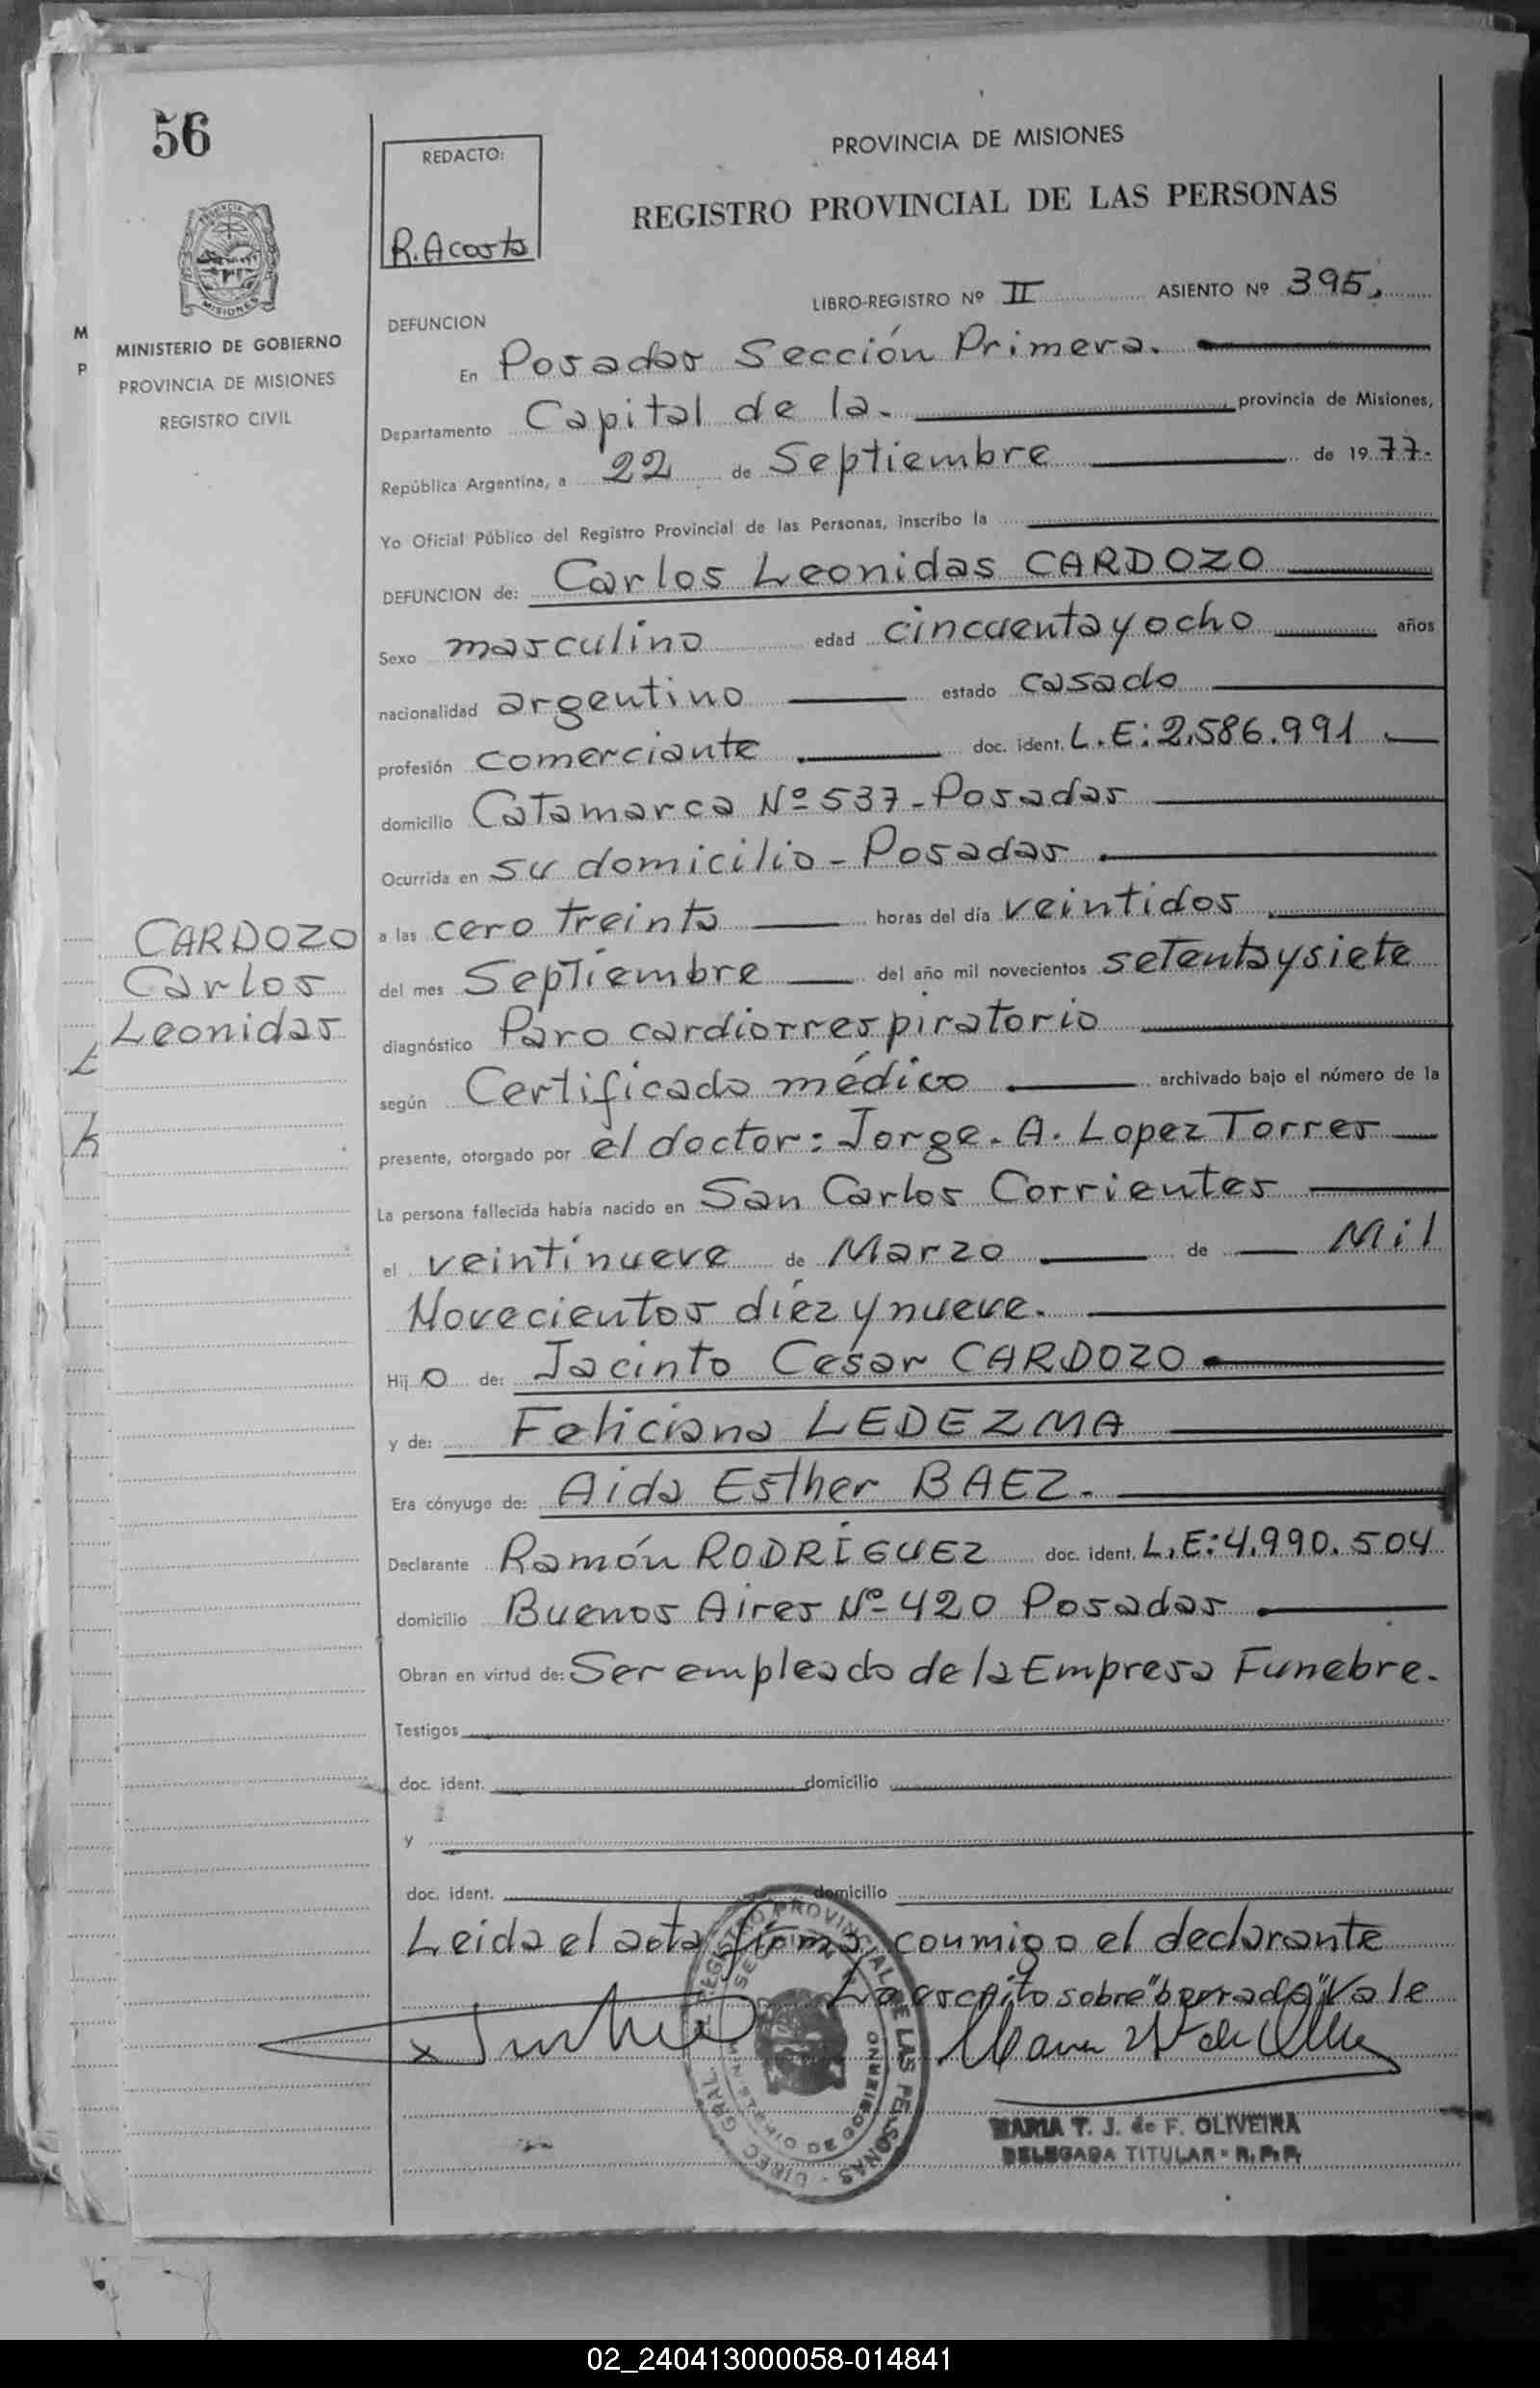 56
REDACTO:
R. Acosta
PROVINCIA DE MISIONES
REGISTRO PROVINCIAL DE LAS PERSONAS
LIBRO-REGISTRO Nº II ASIENTO Nº 395.
MISIONES
M
P
MINISTERIO DE GOBIERNO
PROVINCIA DE MISIONES
REGISTRO CIVIL
DEFUNCION
En Posadas Sección Primera.
Departamento Capital de la. provincia de Misiones,
República Argentina, a 22 de Septiembre de 1977.
Yo Oficial Público del Registro Provincial de las Personas, inscribo la
DEFUNCION de: Carlos Leonidas CARDOZO
Sexo masculino edad cincuenta y ocho años
nacionalidad argentino estado casado
profesión comerciante doc. ident. L.E: 2.586.991
domicilio Catamarca Nº 537 - Posadas
Ocurrida en su domicilio - Posadas
a las cero treinta horas del día veintidos
del mes Septiembre del año mil novecientos setenta y siete
CARDOZO
Carlos
Leonidas
diagnóstico Paro cardiorrespiratorio
según Certificado médico archivado bajo el número de la
presente, otorgado por el doctor: Jorge. A. Lopez Torres
La persona fallecida había nacido en San Carlos Corrientes
el veintinueve de Marzo de Mil
Novecientos diez y nueve.
Hij o de: Jacinto Cesar CARDOZO
y de: Feliciana LEDEZMA
Era cónyuge de: Aida Esther BAEZ.
Declarante Ramón RODRÍGUEZ doc. ident. L.E: 4.990.504
domicilio Buenos Aires Nº 420 Posadas
Obran en virtud de: Ser empleado de la Empresa Funebre.
Testigos
doc. ident. domicilio
y
doc. ident. domicilio
Leida el acta firma conmigo el declarante
Lo escrito sobre "borrado" Vale
REGISTRO PROVINCIAL DE LAS PERSONAS
MARIA T. J. de F. OLIVEIRA
DELEGADA TITULAR - R. P. P.
02_240413000058-014841